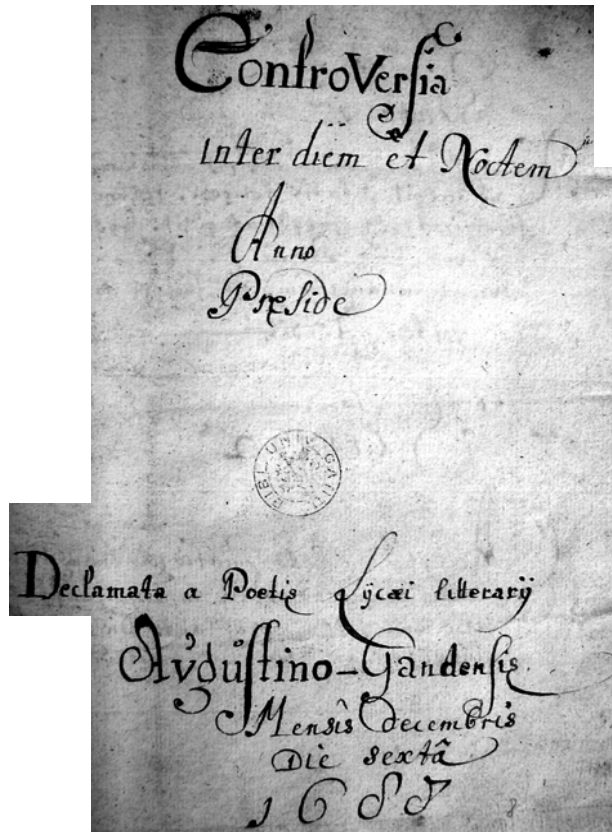 ControVersia
inter diem et Noctem
Anno
Præside
BIBL. UNIV. GAND.
Declamata a Poetis Lycæi litterarÿ
Avgustino-Gandensis
Mensis decembris
Die sextâ